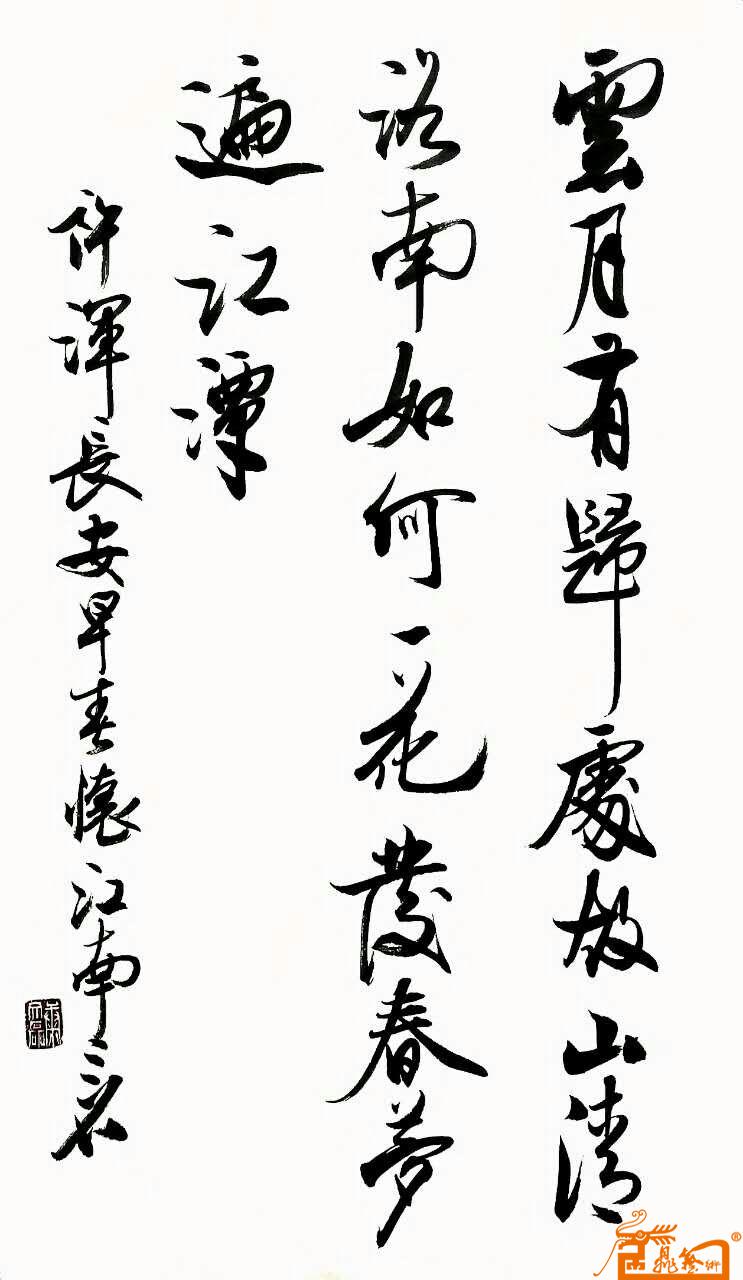 雲月有歸處故山清
洛南如何一花發春夢
遍江潭
許渾長安早春懷江南